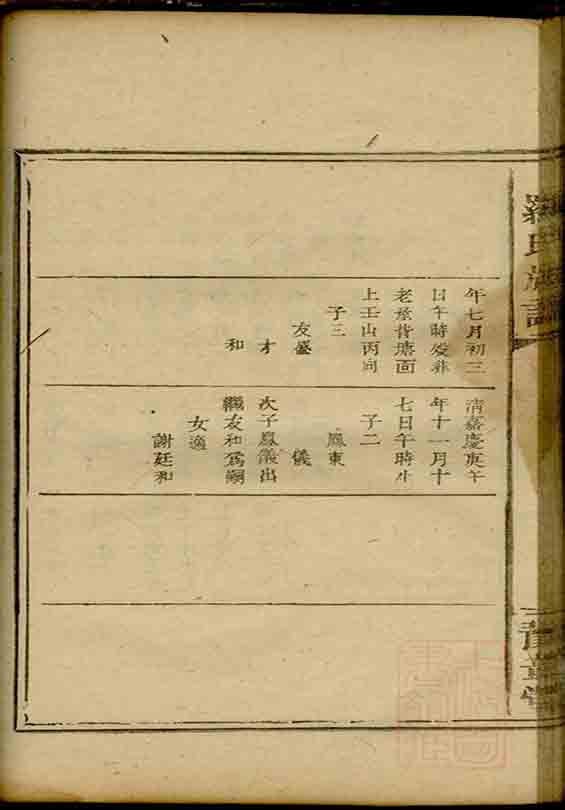 羅氏族譜
年七月初三
日午時歿葬
老屋背塘面
上壬山丙向
子三
友盛
才
和
清嘉慶庚午
年十一月十
七日午時生
子二
鳳東
儀
次子鳳儀出
繼友和爲嗣
女適
謝廷和